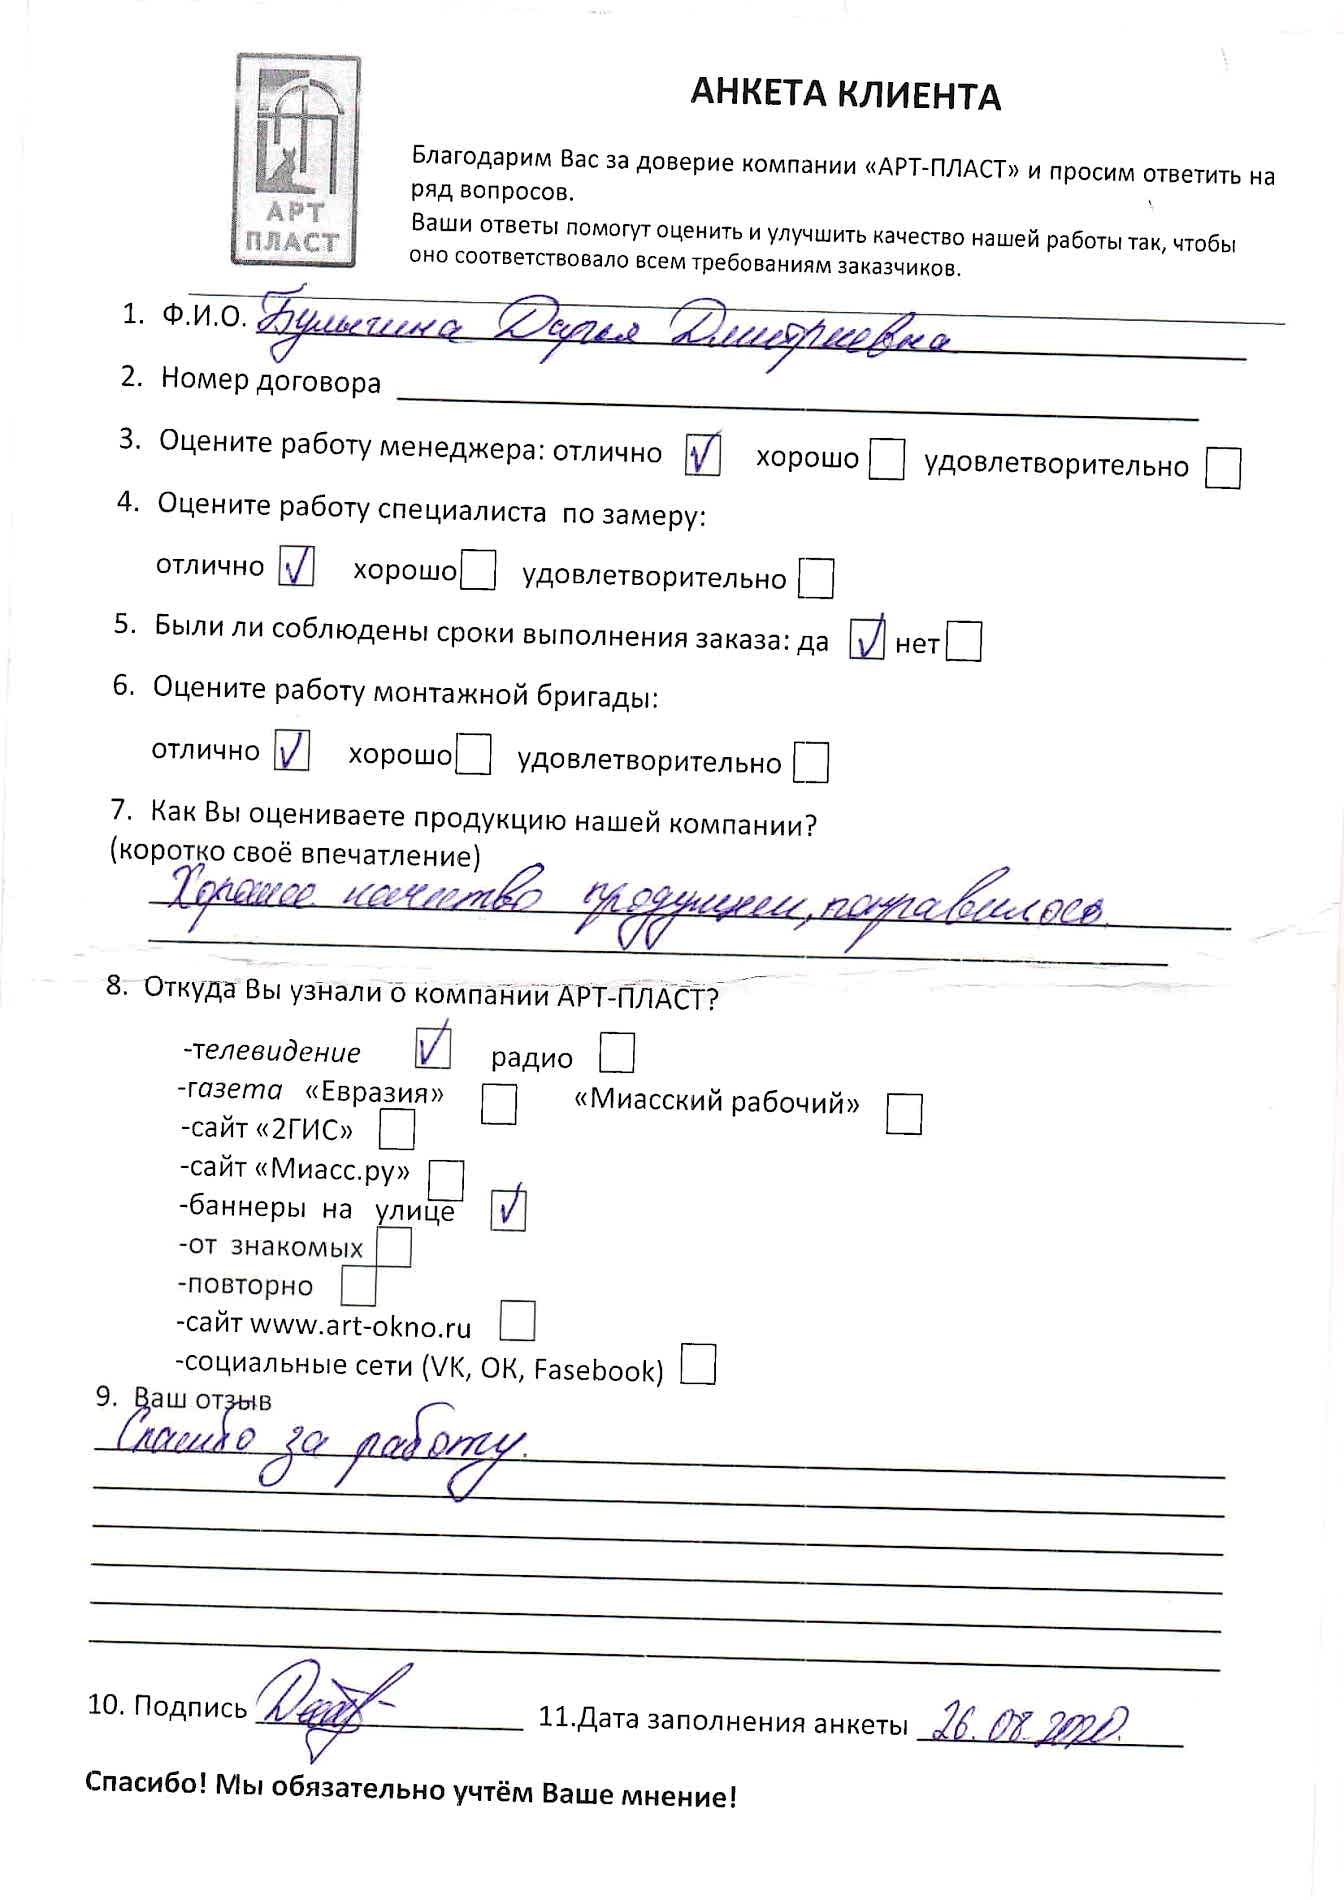 АРТ
ПЛАСТ
АНКЕТА КЛИЕНТА
Благодарим Вас за доверие компании «АРТ-ПЛАСТ» и просим ответить на
ряд вопросов.
Ваши ответы помогут оценить и улучшить качество нашей работы так, чтобы
оно соответствовало всем требованиям заказчиков.
1. Ф.И.О. Булыгина Дарья Дмитриевна
2. Номер договора
3. Оцените работу менеджера: отлично хорошо удовлетворительно
4. Оцените работу специалиста по замеру:
отлично хорошо удовлетворительно
5. Были ли соблюдены сроки выполнения заказа: да нет
6. Оцените работу монтажной бригады:
отлично хорошо удовлетворительно
7. Как Вы оцениваете продукцию нашей компании?
(коротко своё впечатление)
Хорошее качество продукции, понравилось.
8. Откуда Вы узнали о компании АРТ-ПЛАСТ?
-телевидение радио
-газета «Евразия» «Миасский рабочий»
-сайт «2ГИС»
-сайт «Миасс.ру»
-баннеры на улице
-от знакомых
-повторно
-сайт www.art-okno.ru
-социальные сети (VK, OK, Fasebook)
9. Ваш отзыв
Спасибо за работу.
10. Подпись 11.Дата заполнения анкеты 26.08.2020.
Спасибо! Мы обязательно учтём Ваше мнение!